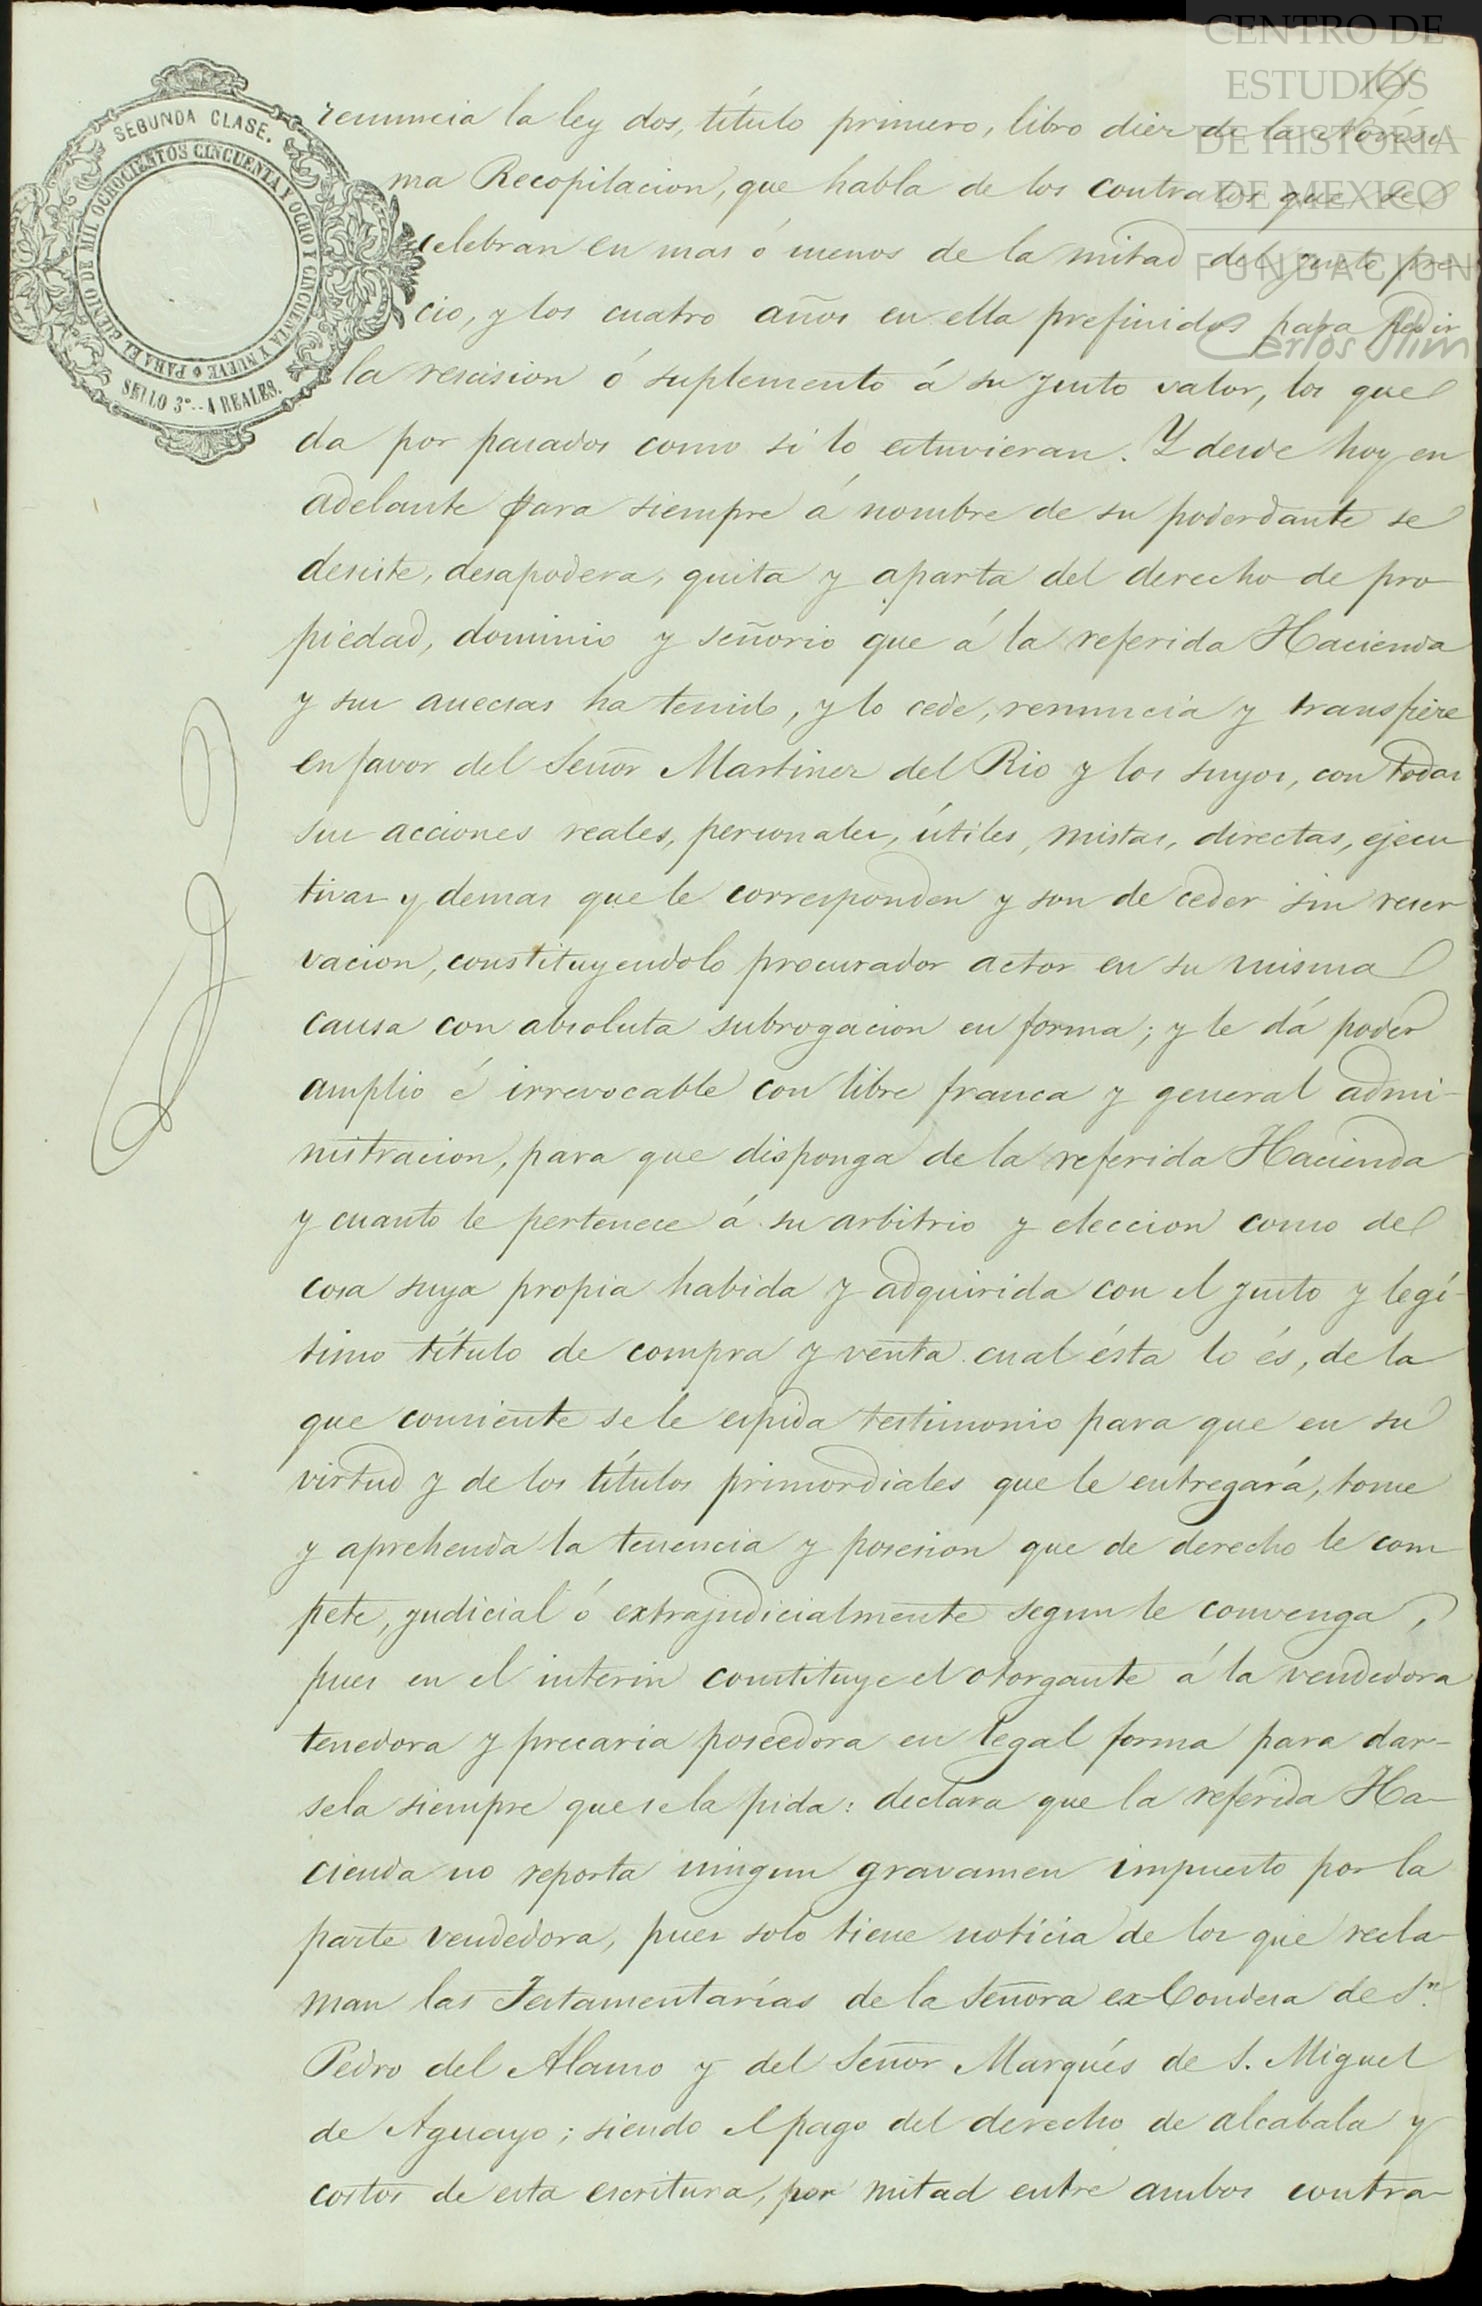 CENTRO DE
ESTUDIOS
DE HISTORIA
DE MEXICO
FUNDACION
Carlos Slim
SEGUNDA CLASE.
PARA EL BIENIO DE MIL OCHOCIENTOS CINCUENTA Y OCHO Y CINCUENTA Y NUEVE
SELLO 3º.. 4 REALES.
renuncia la ley dos, título primero, libro diez de la Novísi
ma Recopilacion, que habla de los contratos que se
celebran en mas ó menos de la mitad del justo pre-
cio, y los cuatro años en ella prefinidos para pedir
la rescision ó suplemento á su justo valor, los que
da por pasados como si lo estuvieran. Y desde hoy en
adelante para siempre á nombre de su poderdante se
desiste, desapodera, quita y aparta del derecho de pro-
piedad, dominio y señorio que á la referida Hacienda
y sus anecsas ha tenido, y lo cede, renuncia y transfiere
en favor del Señor Martinez del Rio y los suyos, con todas
sus acciones reales, personales, útiles, mistas, directas, ejecu
tivas y demas que le corresponden y son de ceder sin reser
vacion, constituyendolo procurador actor en su misma
causa con absoluta subrogacion en forma; y le dá poder
amplio é irrevocable con libre franca y general admi-
nistracion, para que disponga de la referida Hacienda
y cuanto le pertenece á su arbitrio y eleccion como de
cosa suya propia habida y adquirida con el justo y legí-
timo título de compra y venta cual ésta lo és, de la
que consiente se le espida testimonio para que en su
virtud y de los títulos primordiales que le entregará, tome
y aprehenda la tenencia y posesion que de derecho le com
pete, judicial ó extrajudicialmente segun le convenga,
pues en el interin constituye el otorgante á la vendedora
tenedora y precaria poseedora en legal forma para dar-
sela siempre que se la pida: declara que la referida Ha-
cienda no reporta ningun gravamen impuesto por la
parte vendedora, pues solo tiene noticia de los que recla-
man las Testamentarías de la Señora ex-Condesa de Sn.
Pedro del Alamo y del Señor Marqués de S. Miguel
de Aguayo; siendo el pago del derecho de alcabala y
costos de esta escritura, por mitad entre ambos contra-